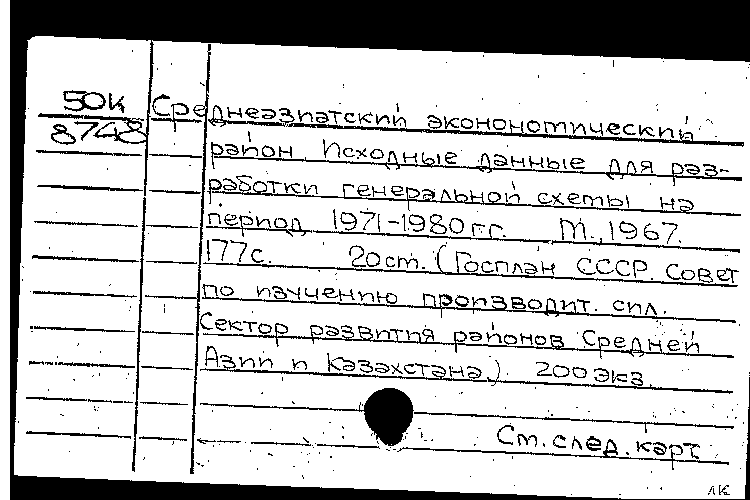 50К Среднеазиатский экономический
8748 район. Исходные данные для раз-
работки генеральной схемы на
период 1971-1980 г.г. М., 1967.
177с. 20см. (Госплан СССР. Совет
по изучению производит. сил.
Сектор развития районов Средней
Азии и Казахстана.) 200 экз.
См. след. карт.
ЛК